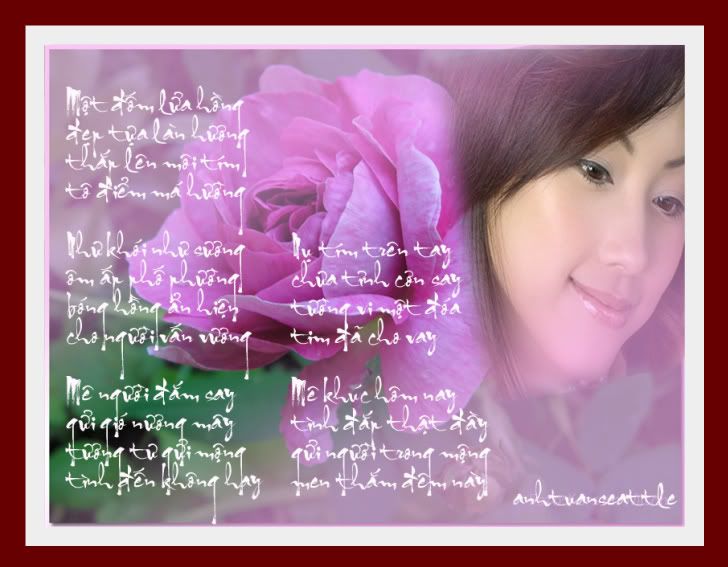 Một đốm lửa hồng
đẹp tựa làn hương
thắp lên môi tím
tô điểm má hường
Như khói như sương
ôm ấp phố phường
bóng hồng ẩn hiện
cho người vấn vương
Mê người đắm say
gửi gió nương mây
tương tư gửi mộng
tình đến không hay
Nụ tím trên tay
chửa tỉnh cơn say
tường vi một đóa
tim đã cho vay
Mê khúc hôm nay
tình đắp thật đầy
gửi người trong mộng
men thắm đêm này
anhtuanseattle